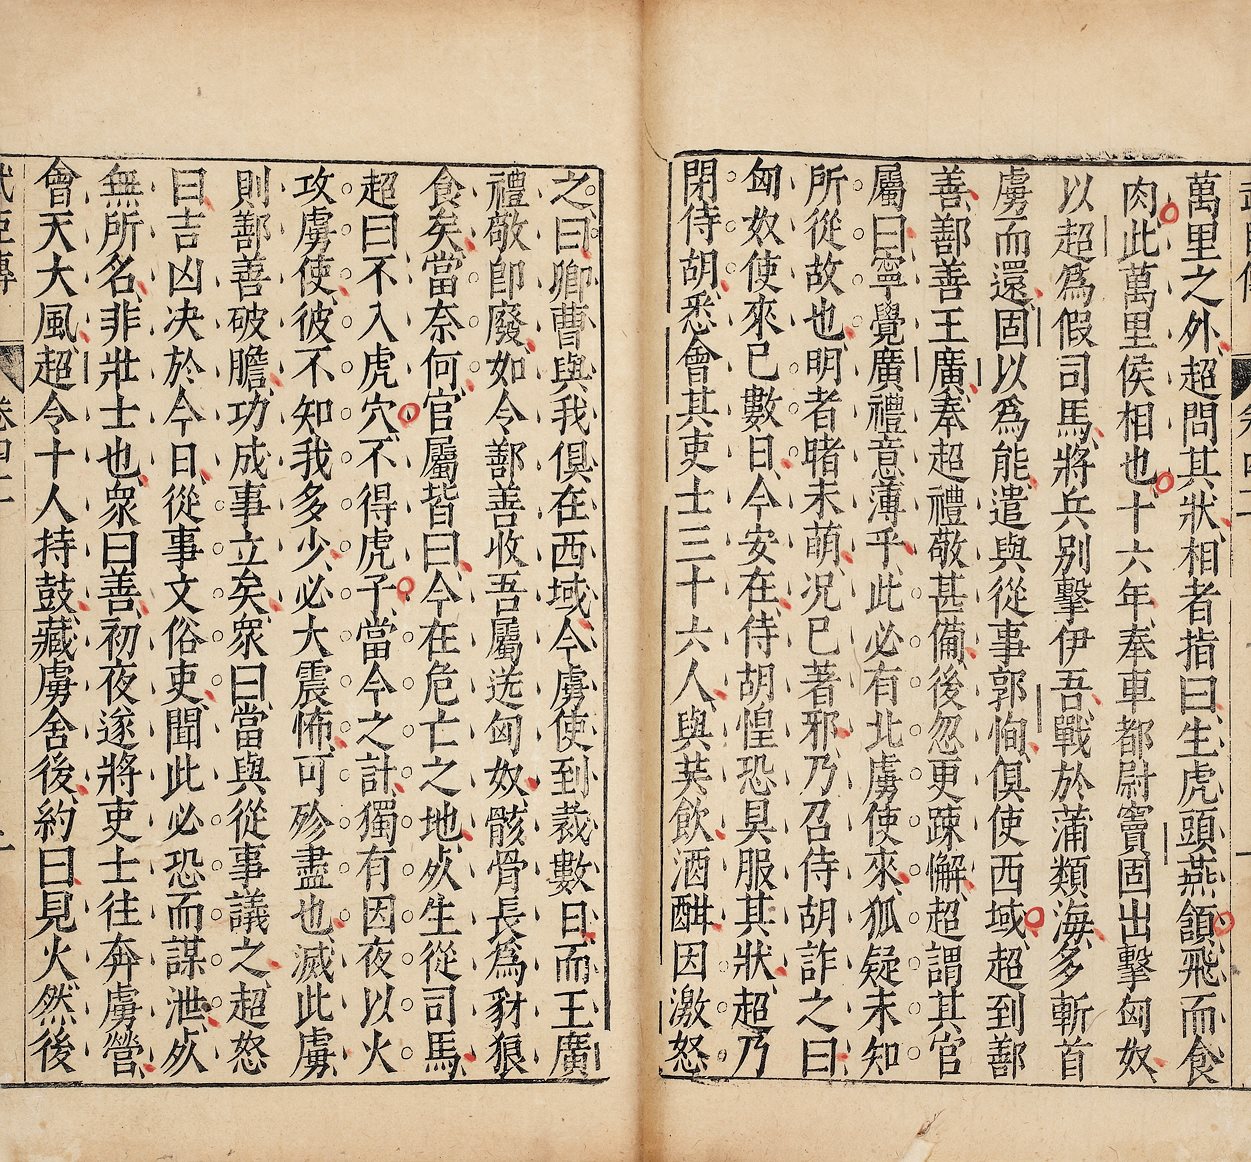 萬里之外超問其狀相者指曰生虎頭燕頷飛而食
肉此萬里侯相也十六年奉車都尉竇固出擊匈奴
以超爲假司馬將兵別擊伊吾戰於蒲類海多斬首
虜而還固以爲能遣與從事郭恂俱使西域超到鄯
善鄯善王廣奉超禮敬甚備後忽更疎懈超謂其官
屬曰寧覺廣禮意薄乎此必有北虜使來狐疑未知
所從故也明者睹未萌况已著邪乃召侍胡詐之曰
匈奴使來已數日今安在侍胡惶恐具服其狀超乃
閉侍胡悉會其吏士三十六人與共飲酒酣因激怒
之曰卿曹與我俱在西域今虜使到裁數日而王廣
禮敬卽廢如令鄯善收吾屬送匈奴骸骨長爲豺狼
食矣當奈何官屬皆曰今在危亡之地死生從司馬
超曰不入虎穴不得虎子當今之計獨有因夜以火
攻虜使彼不知我多少必大震怖可殄盡也滅此虜
則鄯善破膽功成事立矣衆曰當與從事議之超怒
曰吉凶决於今日從事文俗吏聞此必恐而謀泄死
無所名非壯士也衆曰善初夜遂將吏士往奔虜營
會天大風超令十人持鼓藏虜舍後約曰見火然後
卷四十